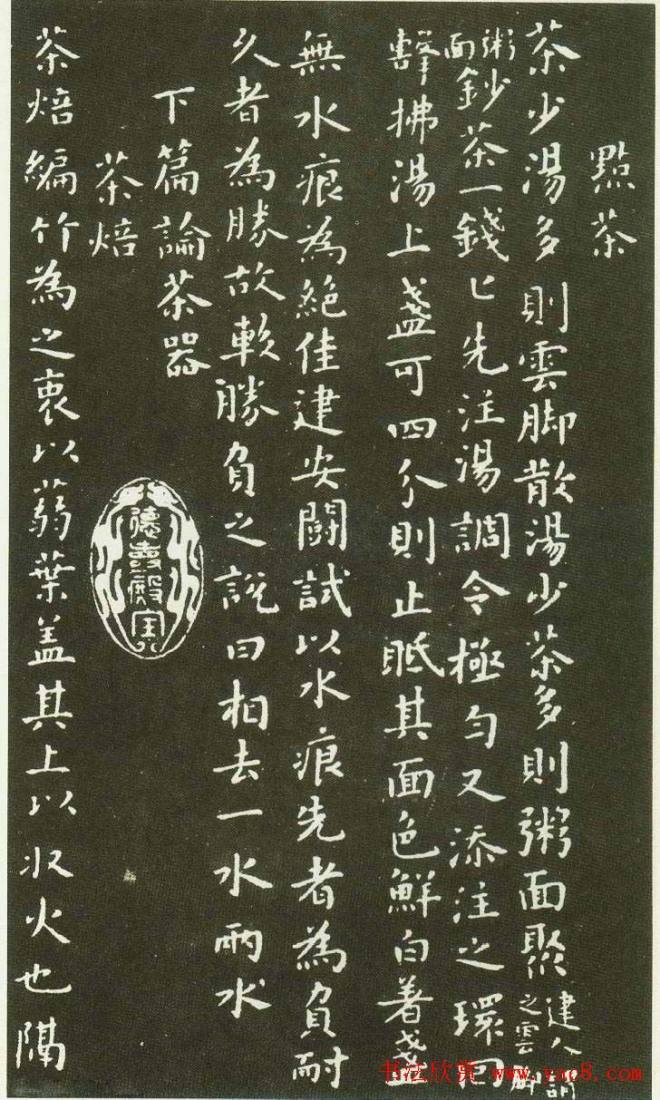 點茶
茶少湯多則雲脚散湯少茶多則粥面聚建人謂之雲脚
粥面鈔茶一錢匕先注湯調令極勻又添注之環回
擊拂湯上盞可四分則止眡其面色鮮白著盞
無水痕為絕佳建安鬭試以水痕先者為負耐
久者為勝故較勝負之說曰相去一水兩水
下篇論茶器
茶焙
德壽殿寶
茶焙編竹為之裹以蒻葉盖其上以収火也隔
书法欣赏 www.yac8.com